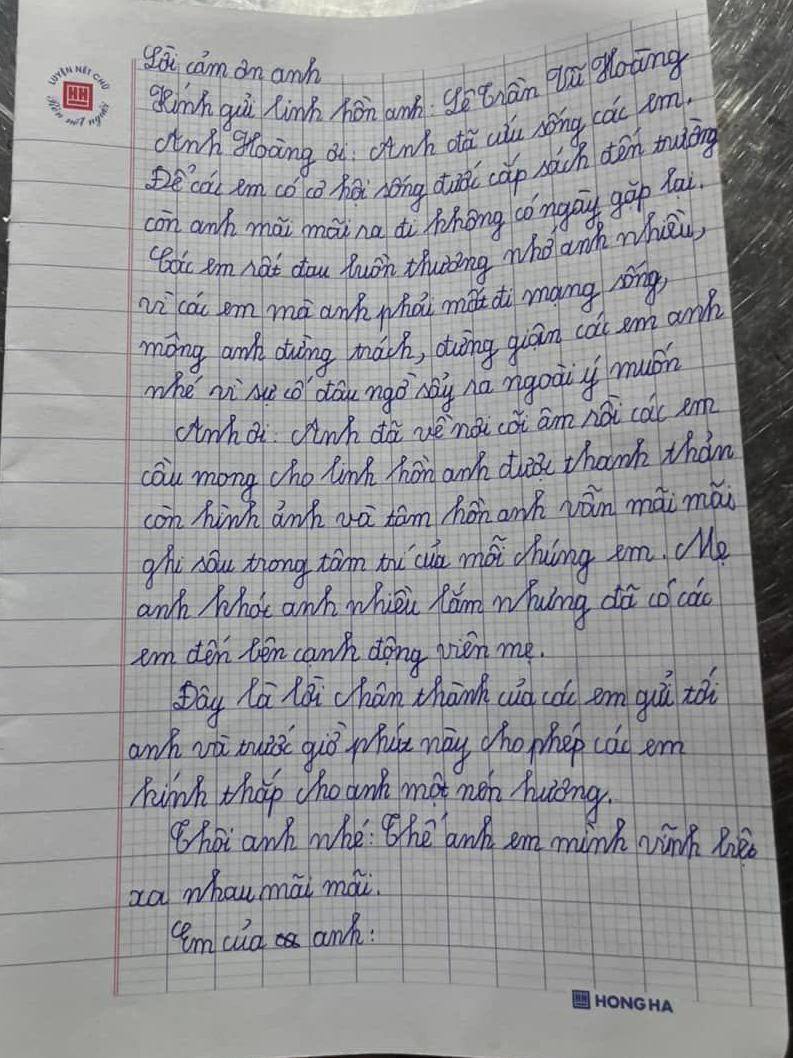 LUYỆN NÉT CHỮ
HH
Rèn nết người
Lời cảm ơn anh
Kính gửi linh hồn anh: Lê Trần Vũ Hoàng
Anh Hoàng ơi: Anh đã cứu sống các em.
Để các em có cơ hội sống được cắp sách đến trường
còn anh mãi mãi ra đi không có ngày gặp lại.
Các em rất đau luôn thương nhớ anh nhiều,
vì các em mà anh phải mất đi mạng sống,
mông anh đừng trách, đừng giận các em anh
nhé vì sự cố đâu ngờ sảy ra ngoài ý muốn
Anh ơi: Anh đã về nơi cõi âm rồi các em
cầu mong cho linh hồn anh được thanh thản
còn hình ảnh và tâm hồn anh vẫn mãi mãi
ghi sâu trong tâm trí của mỗi chúng em. Mẹ
anh khóc anh nhiều lắm nhưng đã có các
em đến bên cạnh động viên mẹ.
Đây là lời chân thành của các em gửi tới
anh và trước giờ phút này cho phép các em
kính thắp cho anh một nén hương.
Thôi anh nhé: Thế anh em mình vĩnh biệt
xa nhau mãi mãi.
Em của anh:
HH HONG HA